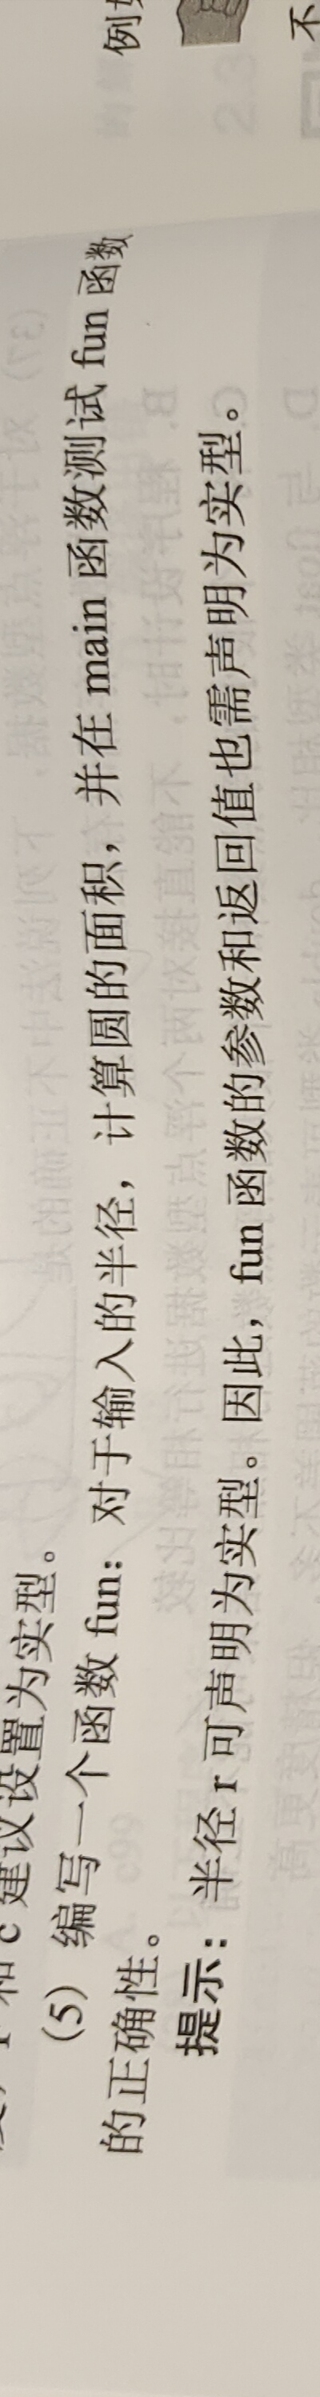 和 c 建议设置为实型。
(5) 编写一个函数 fun：对于输入的半径，计算圆的面积，并在 main 函数测试 fun 函数
的正确性。
提示：半径 r 可声明为实型。因此，fun 函数的参数和返回值也需声明为实型。
例
不